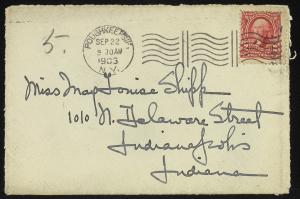 5.
POUGHKEEPSIE
SEP 22
9 30 AM
1903
N.Y.
Miss May Louise Shipp
1010 N. Delaware Street
Indianapolis
Indiana